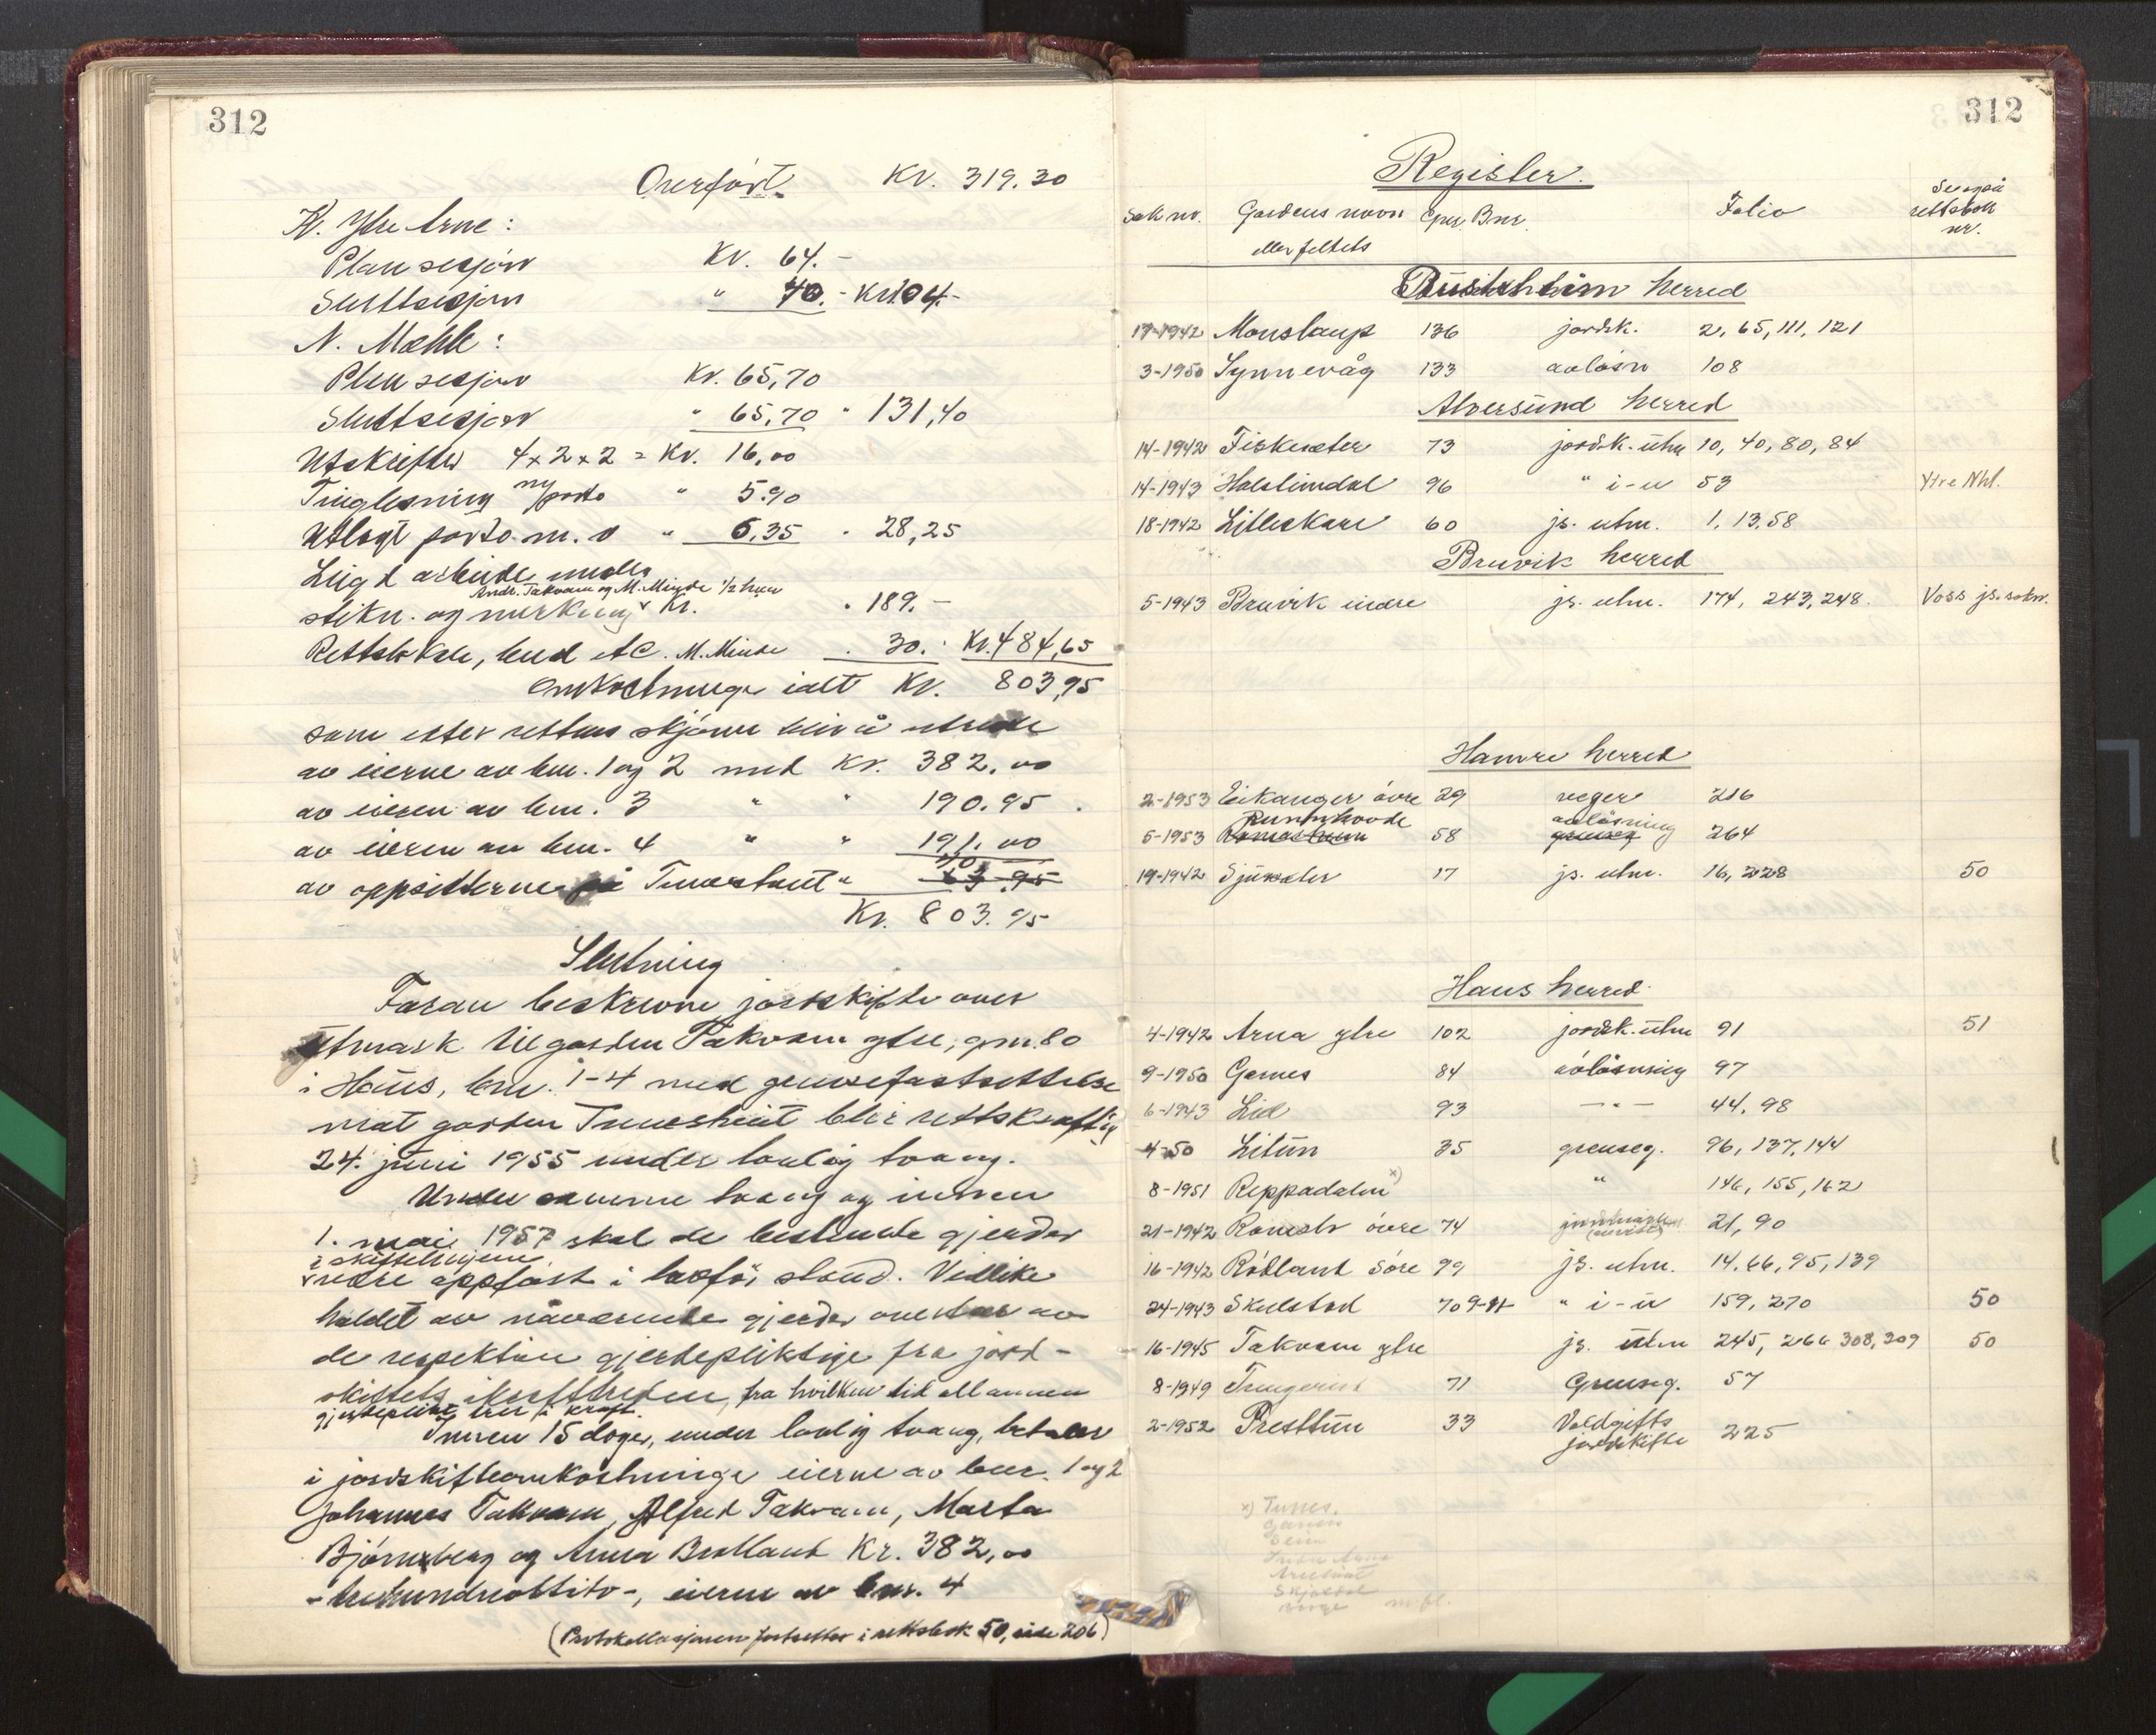 312
Overført Kr. 319.30
K. Ytre Arne:
Plansesjon Kr. 64.-
Sluttsesjon " 40.- Kr. 104.-
N. Mæhle:
Plansesjon Kr. 65,70
Sluttsesjon " 65,70 " 131,40
Utskrifter 4x2x2 = Kr. 16,00
Tinglesning m/porto " 5.90
Utlagt porto m. v " 6,35 " 28,25
Leigd arbeide under
Andr. Takvam og M. Minde 1/2 hver
stikn. og merking Kr. " 189.-
Rettslokale, bud etc. M. Minde " 30.- Kr. 484,65
Omkostninger ialt Kr. 803,95
som etter rettens skjønn blir å utrede
av eierne av bnr. 1 og 2 med Kr. 382,00
av eieren av bnr. 3 " " 190.95.
av eieren av bnr. 4 " " 191.00
av oppsitterne på Tunestveit " 40.- 63.95
Kr. 803.95
Slutning
Foran beskrevne jordskifte over
utmark til garden Takvam ytre, gnr. 80
i Haus, bnr. 1-4 med grensefastsettelse
mot garden Tunestveit blir rettskraftig
24. juni 1955 under lovlig tvang.
Under samme tvang og innen
1. mai 1957 skal de bestemte gjerder
i skiftelinjene
være oppført i lovfør stand. Vedlike
holdet av nåværende gjerder overtar av
de respektive gjerdepliktige fra jord-
skiftets ikrafttreden, fra hvilken tid all annen
gjerdeplikt trer i kraft.
Innen 15 dager, under lovlig tvang, betaler
i jordskifteomkostninger eierne av bnr. 1 og 2
Johannes Takvam, Alfred Takvam, Marta
Bjørnsberg og Anna Brotland Kr. 382,00
-trehundreottito-, eierne av bnr. 4
(Protokollasjonen fortsetter i rettsbok 50, side 206)
312
Register.
Sak nr. Gardens navn Gnr. Bnr. Folio Se også rettsbok nr.
eller feltets
herred
17-1942 Monslaup 136 jordsk. 2, 65, 111, 121
3-1950 Synnevåg 133 avløsn 108
Alversund herred
14-1942 Fiskeseter 73 jordsk. utm 10, 40, 80, 84
14-1943 Hopslimdal 96 " i-u 53 Ytre Nhl.
18-1942 Litleskare 60 js. utm. 1, 13, 58
Bruvik herred
5-1943 Bruvik indre js. utm. 174, 243, 248. Voss js. sokn.
Hamre herred
2-1953 Eikanger øvre 29 veger 216
6-1953 Runnhovde 58 avløsning grenseg 264
19-1942 Sjurseter 17 js. utm. 16, 228 50
Haus herred
4-1942 Arna ytre 102 jordsk. utm 91 51
9-1950 Garnes 84 avløsning 97
6-1943 Lid 93 -"- 44, 98
4-50 Litun 35 grenseg. 96, 137, 144
8-1951 Reppadalen x) " 146, 155, 162
21-1942 Romslo øvre 74 21, 90
16-1942 Rødland søre 99 js. utm. 14, 66, 95, 139
24-1943 Skulstad 70 9-11 " i-u 159, 270 50
16-1945 Takvam ytre js. utm 245, 266 308, 309 50
8-1949 71 Grenseg. 57
2-1952 Presttun 33 Voldgifts jordskifte 225
x) Tunes.
Garnes
Seim
Indre Arna
Arnetveit
Skjoldal
m.fl.